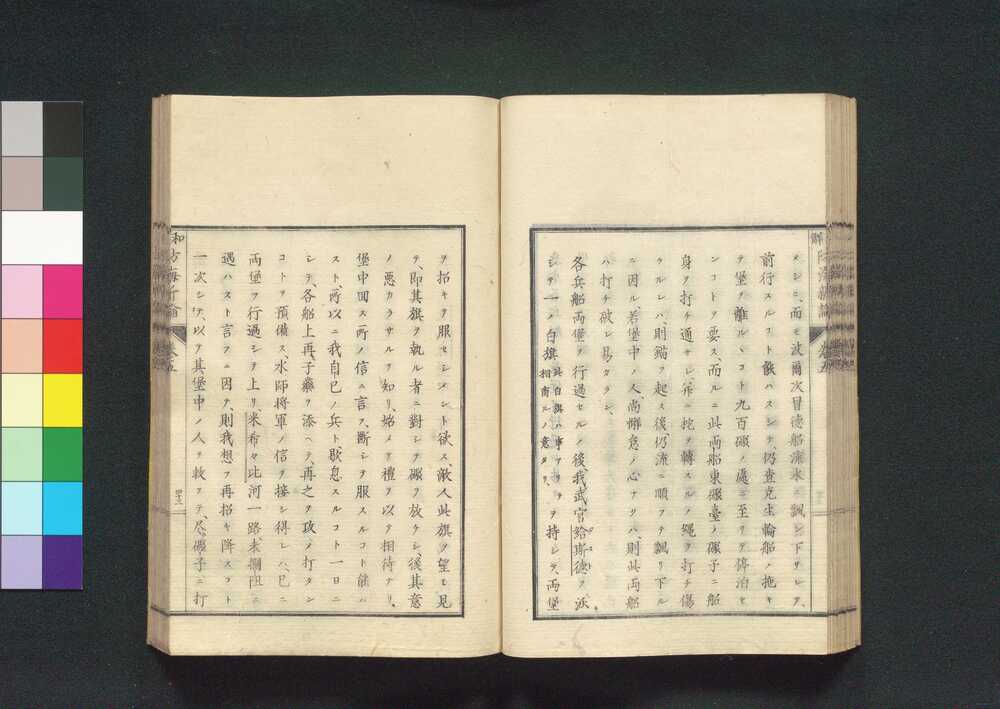 メシニ、而モ波爾次冒徳船流水ニ飄シ下リレヲ、
前行スルコト能ハスシテ、仍査克生輪船ノ拖キ
テ堡ヲ離ルヽコト九百碾ノ處ニ至リテ停泊セ
ンコトヲ要ス、而ルニ此両船東碾臺ノ碾子ニ船
身ヲ打チ通サレ、并ニ柁ヲ轉スルノ縄ヲ打チ傷
ケルレハ、則錨ヲ起ス後仍流ニ順フテ飄リ下ル
ニ因ル若堡中ノ人、尚懈怠ノ心ナリハ、則此両船
ハ打チ破レ易カラン、
各兵船両堡ヲ行過セルノ後、我武官給斯徳ヲ派
シテ一ノ白旗
相商ルノ意タリ、
ヲ持シテ、両堡
ヲ招キヲ服セシメント欲ス、敵人此旗ヲ望ミ見
テ、即其旗ヲ執ル者ニ對シテ碾ヲ放ケシ、後其意
ノ悪カラサルヲ知リ、始メテ禮ヲ以テ相待ナリ、
堡中回ス所ノ信ニ言フ、断シテ服スルコト能ハ
スト、所以ニ我自已ノ兵ト歇息スルコト一日ニ
シテ、各船上再子藥ヲ添ヘテ、再之ヲ攻メ打タン
コトヲ預備ス、水師将軍ノ信ヲ接シ得レハ、已ニ
両堡ヲ行過シテ上リ、米希々比河一路、未攔阻ニ
遇ハスト言フニ因テ、則我想フ再招キ降スコト
一次シテ、以テ其堡中ノ人ヲ救フテ、尽碾子ニ打